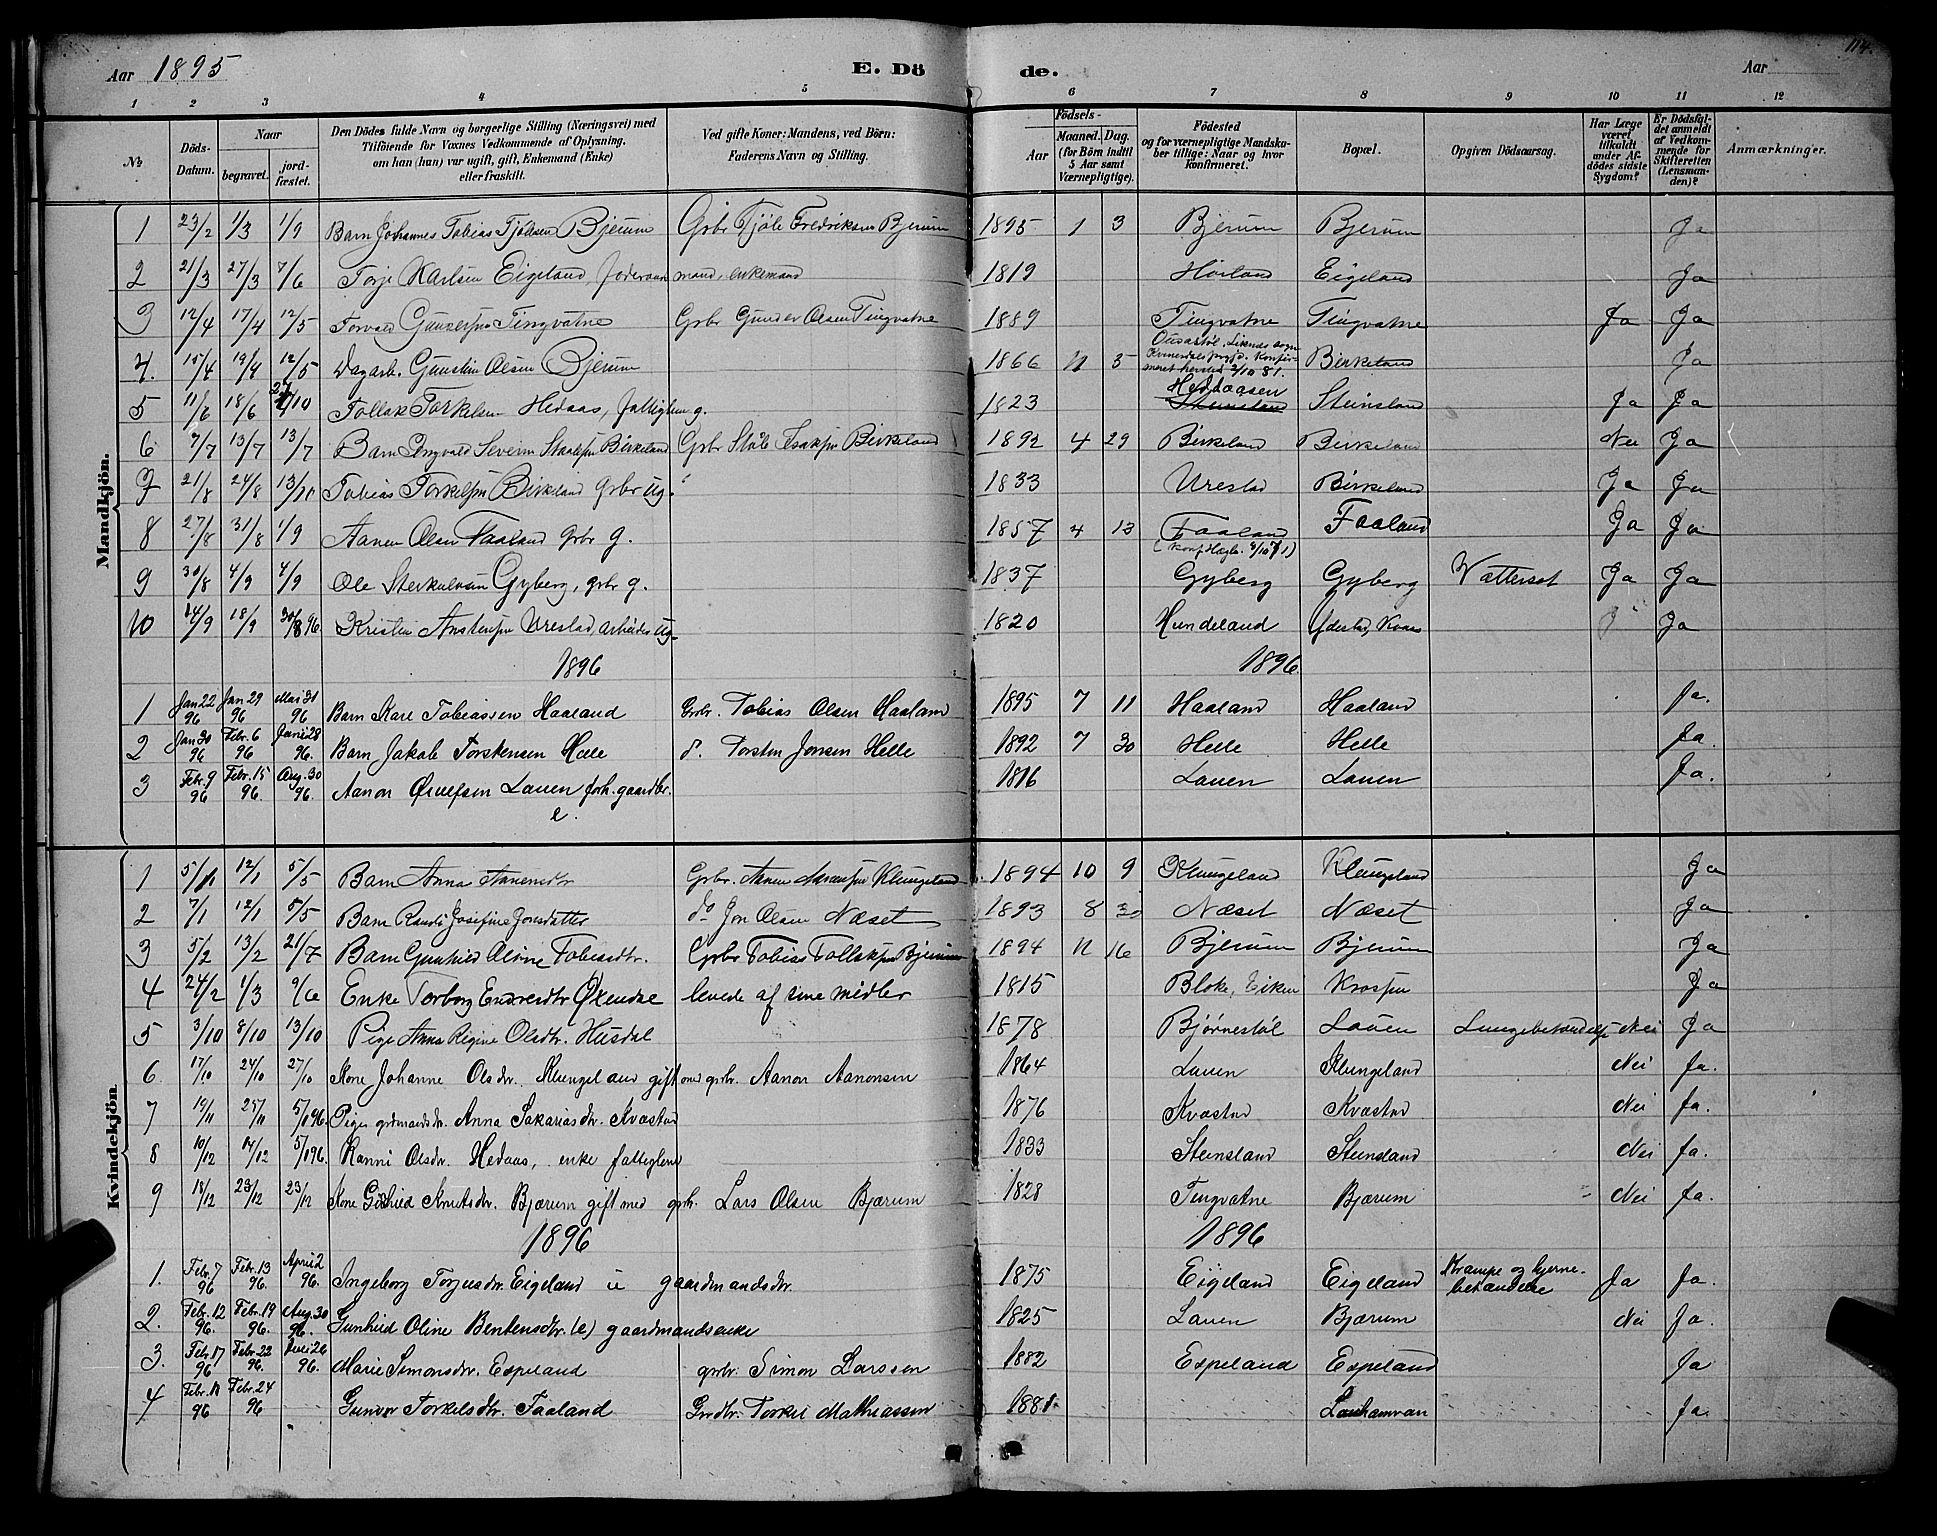 114.
Aar 1895 E. Dö de. Aar
1 2 3 4 5 6 7 8 9 10 11 12
No. Döds-Datum. Naar begravet. jord-fæstet. Den Dödes fulde Navn og borgerlige Stilling (Næringsvei) med Tilföiende for Voxnes Vedkommende af Oplysning, om han (hun) var ugift, gift, Enkemand (Enke) eller fraskilt. Ved gifte Koner: Mandens, ved Börn: Faderens Navn og Stilling. Födsels- Aar Maaned. Dag. (for Börn indtil 5 Aar samt Værnepligtige). Födested og for værnepligtige Mandskaber tillige: Naar og hvor konfirmeret. Bopæl. Opgiven Dödsaarsag. Har Læge været tilkaldt under Afdödes sidste Sygdom? Er Dödsfaldet anmeldt af Vedkommende for Skifteretten (Lensmanden)? Anmærkninger.
Mandkjön.
1 23/2 1/3 1/9 Barn Johannes Tobias Tjølsen Bjerum Grbr Tjöls Fredriksen Bjerum 1895 1 3 Bjerum Bjerum Ja
2 21/3 27/3 7/6 Torje Karlsen Eigeland, foderaadsmand, enkemand 1819 Eigeland Ja
3 12/4 17/4 12/5 Torvald Gundersen Tingvatne Grbr Gunder Olsen Tingvatne 1889 Tingvatne Tingvatne Ja Ja
4. 15/4 19/4 12/5 Dagarb. Gunstein Olsen Bjerum 1866 11 5 Liknes sogn Kvinesdals prgjd. Konfirmeret hersted 2/10 81. Birkeland Ja
5 11/6 18/6 /10 Tollak Torkelsen Hedaas, fattiglem g. 1823 Heddaasen Steinsland Steinsland Ja Ja
6 7/7 13/7 13/7 Barn Severin Staalsen Birkeland Grbr Ståle Isaksen Birkeland 1892 4 29 Birkeland Birkeland Nei Ja
7 21/8 24/8 13/10 Tobias Torkelsen Birkeland Grbr Ug. 1833 Urestad Birkeland Ja Ja
8 27/8 31/8 1/9 Aanen Olsen Faaland Grbr g. 1857 4 13 Faaland Faaland Ja Ja
9 30/8 4/9 4/9 Ole Sterkelsen Gyberg, grbr g. 1837 Gyberg Gyberg Vattersot Ja Ja
10 14/9 18/9 30/8 96 Kristen Anstensen Urestad, arbeider Ug. 1820 Hundeland Ja
1896 1896
1 Jan 22 96 Jan 29 96 Mai 31 96 Barn Kare Tobiassen Haaland Grbr. Tobias Olsen Haaland 1895 7 11 Haaland Haaland Ja.
2 Jan 30 96 Febr. 6 96 Juni 28 96. Barn Jakob Torstensen Helle d. Torsten Jonsen Helle 1892 7 30 Helle Helle Ja.
3 Febr. 9 96 Febr. 15 96. Aug. 30 96. Aanon Lauen forh. gaardbr. e. 1816 Lauen Lauen Ja.
Kvindekjön
1 5/1 12/1 5/5 Barn Anna Aanensdtr Grbr. Aanen Klungeland 1894 10 9 Klungeland Klungeland Ja
2 7/1 12/1 5/5 Barn Randi Josefine Jonsdatter do Jon Olsen Næset 1893 8 30 Næset Næset Ja
3 5/2 13/2 21/7 Barn Gunhild Oline Tobiasdtr. Grbr Tobias Tollaksen Bjerum 1894 11 16 Bjerum Bjerum Ja
4 24/2 1/3 9/6 Enke Torborg Endresdtr Øxendal levede af sine midler 1815 Bloke, Eiken Ja
5 3/10 8/10 13/10 Pige Anna Regine Olsdtr. Husdal 1878 Bjørnestøl Lauen Lungebetændelse Nei Ja
6. 17/10 24/10 27/10 Kone Johanne Olsdr. Klungeland gift med grbr. Aanon Aanonsen 1864 Lauen Klungeland Nei Ja.
7 19/11 25/11 5/1 96. Pige grdmandsdr. Anna Sakariasdtr. Kvastad 1876 Kvastad Kvastad Nei Ja.
8 10/12 14/12 5/1 96. Ranni Olsdr. Hedaas, enke fattiglem 1833 Steinsland Steinsland Nei Ja.
9 18/12 23/12 23/12 Kone Gunhild Knutsdtr. Bjærum gift med grbr. Lars Olsen Bjærum 1828 Tingvatne Bjærum Nei Ja.
1896 1896
1. Febr. 7 96 Febr. 13 96. April 2 96. Ingeborg Torjusdr. Eigeland u gaardmandsdtr. 1875 Eigeland Eigeland Krampe og hjernebetændelse Ja Ja.
2. Febr. 12 96. Febr. 19 96. Aug. 30 96. Gunhild Oline Bentensdtr. (e) gaardmandsenke 1825 Lauen Bjærum Nei Ja.
3. Febr. 17 96 Febr. 22 96. Juli 26 96. Marie Simonsdtr. Espeland grbr. Simon Larssen 1882 Espeland Espeland Ja
4 Febr. 18 96 Febr. 24 96 Gunvor Torkelsdtr. Faaland Grdbr. Torkel Mathiassen 1881. Ja.